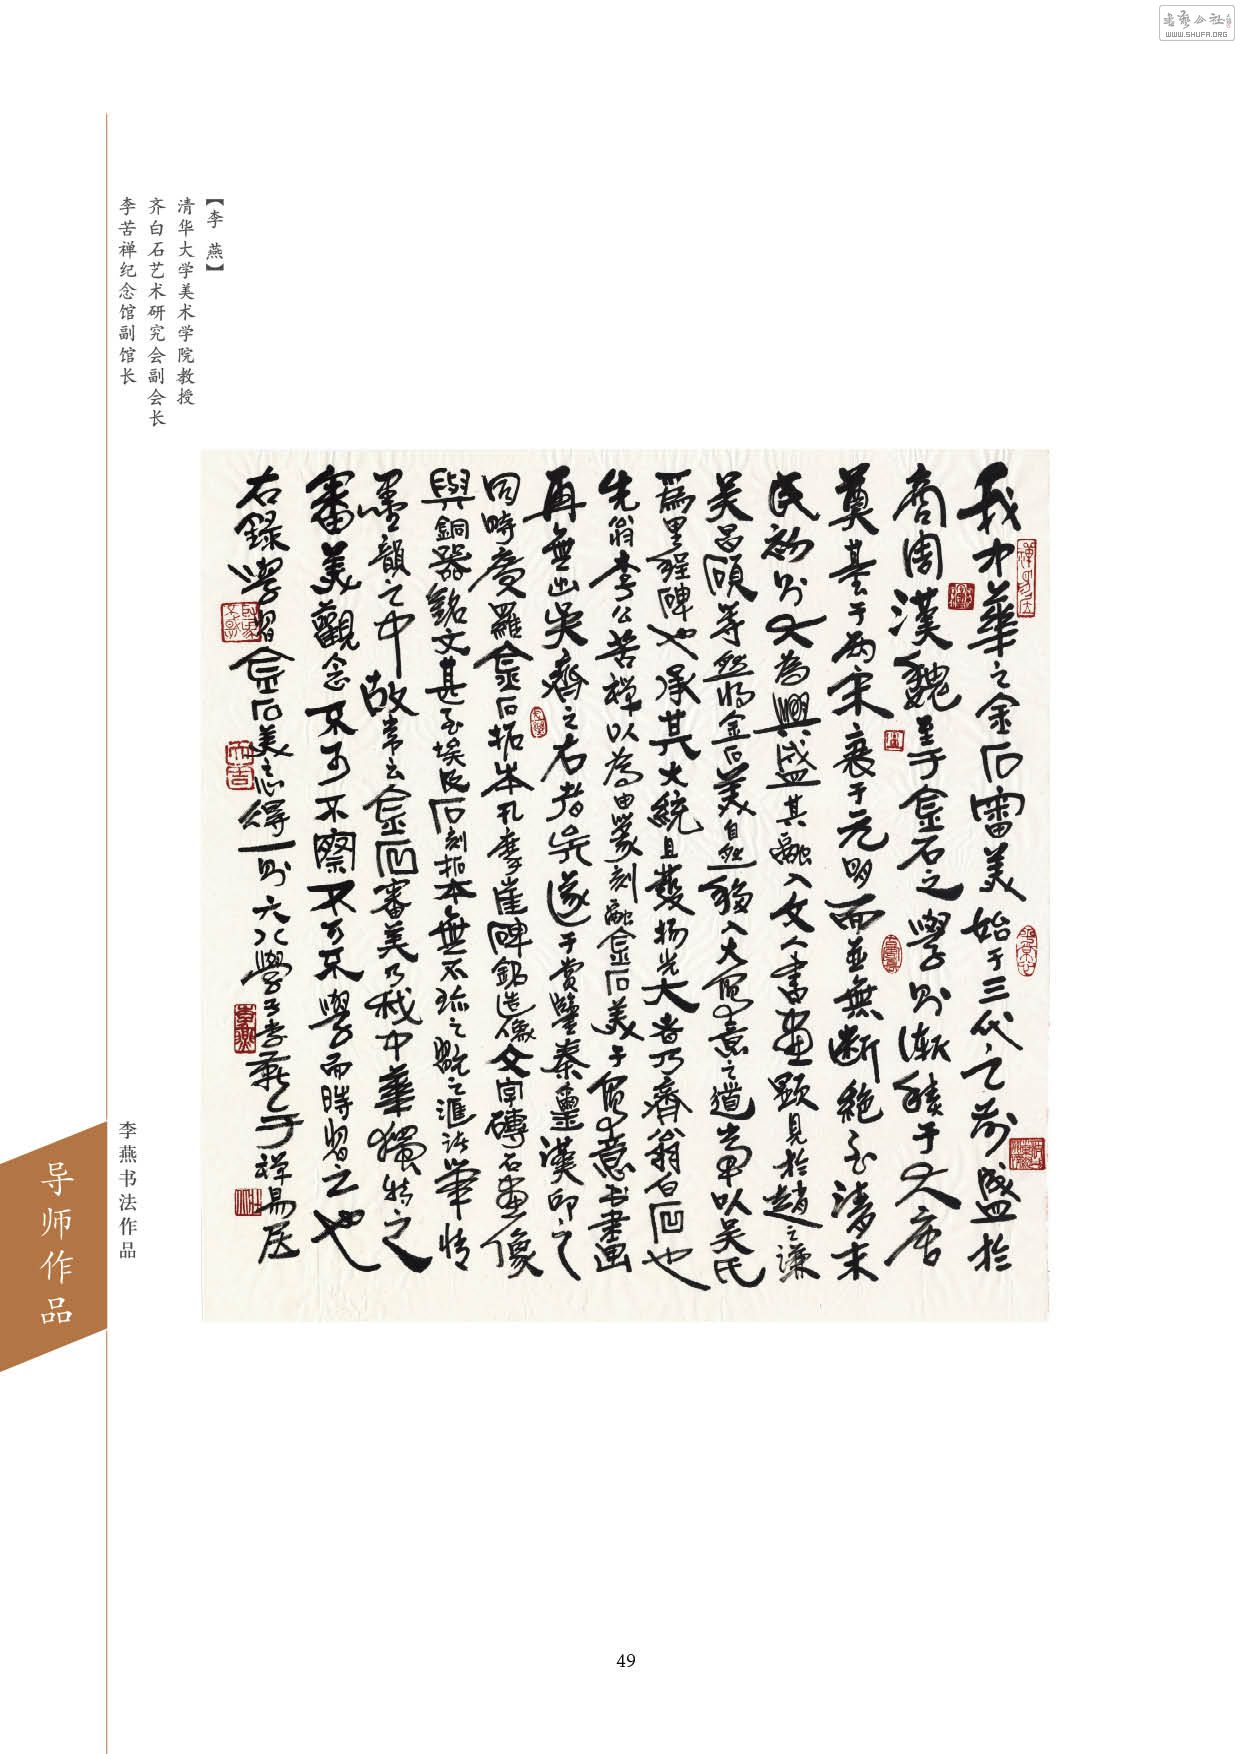 書藝公社
WWW.SHUFA.ORG
【李 燕】
清华大学美术学院教授
齐白石艺术研究会副会长
李苦禅纪念馆副馆长
我中華之金石審美始于三代之前盛於
商周漢魏至于金石之學則漸 于大唐
奠基于两宋衰于元明而並無断絶至清末
民初则大為興盛其融入文人書画顕見於趙之谦
吴昌碩等然将金石美自然移入大寫意之道当以吴氏
爲里程碑也承其大統且發扬光大者乃齊翁白石也
先翁李公苦禅以為由篆刻融金石美于寫意书画
再無出吴齊之右者 遂于赏鑒秦璽漢印之
同時廣羅金石拓本凡摩崖碑銘造像文字磚石画像
與銅器銘文甚至埃及石刻拓本無不 之 之滙 筆情
墨韻之中故常云金石審美乃我中華獨特之
審美觀念不可不察不可不學而時習之也
右録學習金石美之心得一则六八學子李燕于禅易居
李燕书法作品
导师作品
49